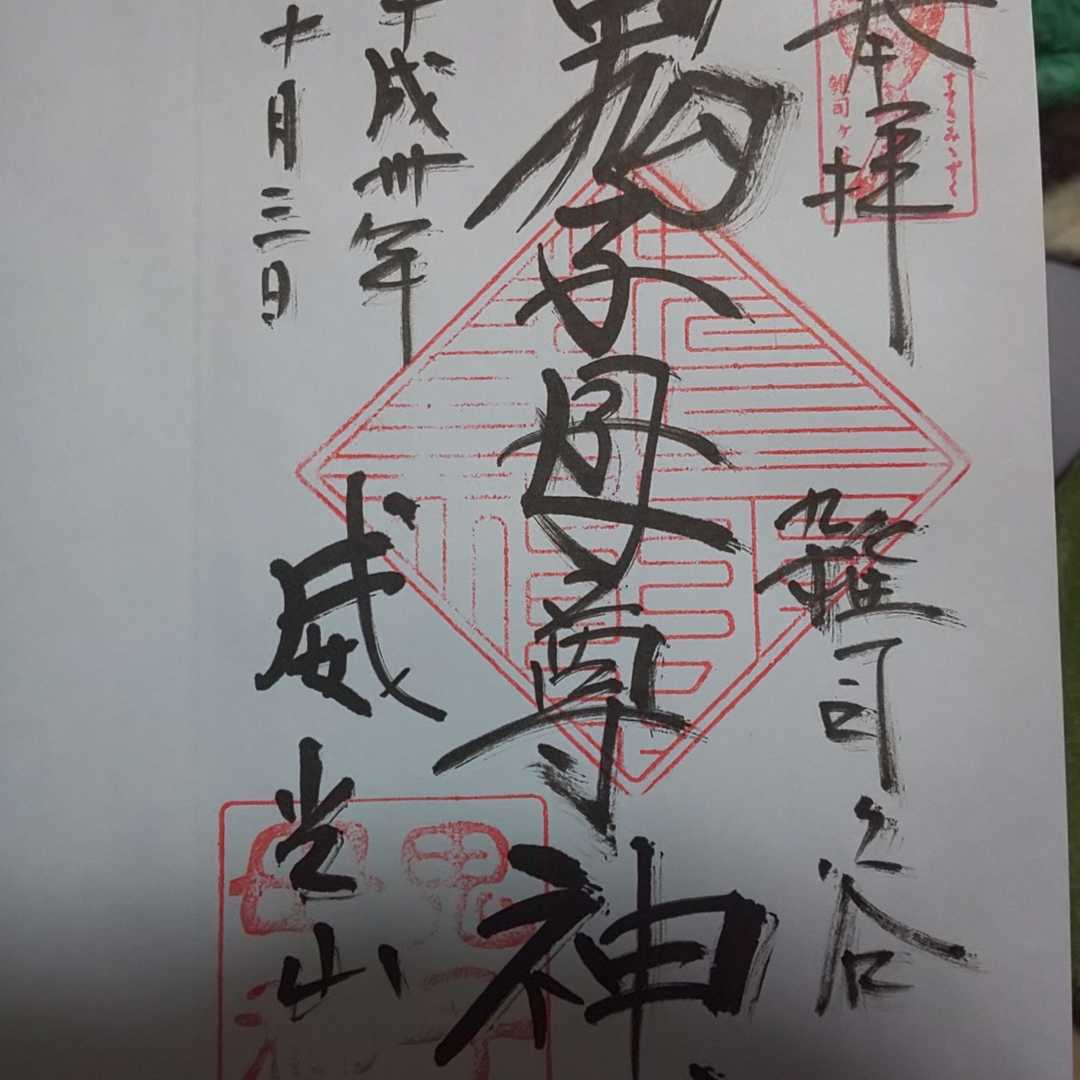 奉拝
雑司ヶ谷
鬼子母尊神
平成卅年
十月三日
威光山
すすきみゝずく
雑司ヶ
鬼子
母神